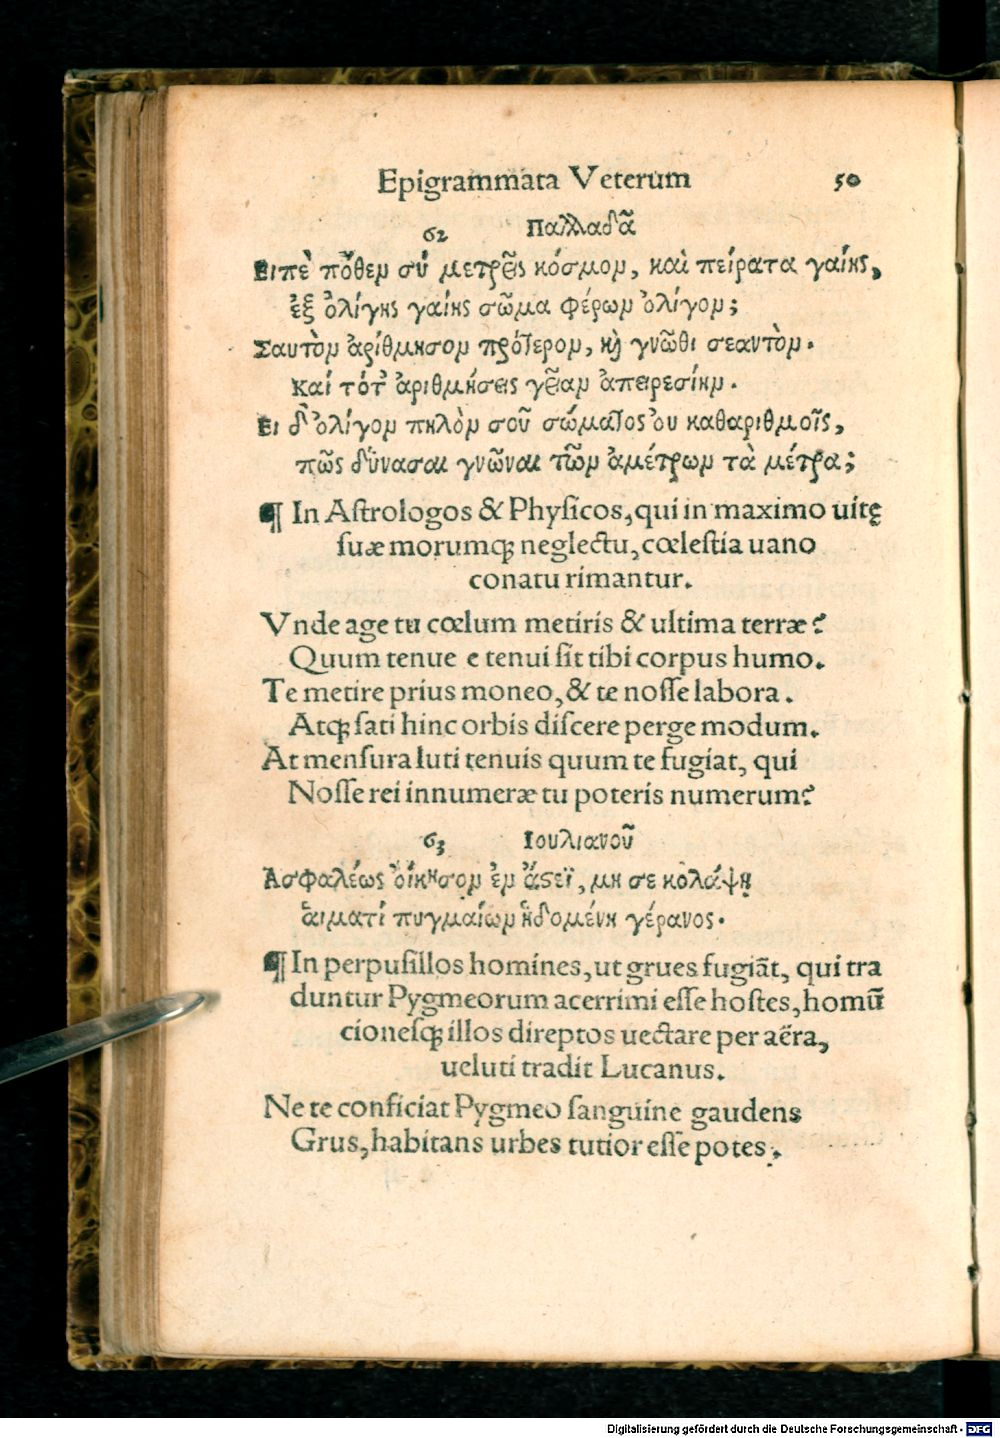 Epigrammata Veterum 50
62 Παλλαδᾶ
Ειπὲ πόθεν σὺ μετρεῖς κόσμον, καὶ πείρατα γαίης,
ἐξ ὀλίγης γαίης σῶμα φέρων ὀλίγον;
Σαυτὸν ἀρίθμησον πρότερον, κὴ γνῶθι σεαυτὸν.
Καί τότ' ἀριθμήσεις γεῖαν ἀπειρεσίην.
Ει δ' ὀλίγον πηλὸν σοῦ σώματος ὀυ καθαριθμοῖς,
πῶς δύνασαι γνῶναι τῶν ἀμέτρων τὰ μέτρα;
¶ In Aſtrologos & Phyſicos, qui in maximo uitę
ſuæ morumqꝫ neglectu, cœleſtia uano
conatu rimantur.
Vnde age tu cœlum metiris & ultima terræ?
Quum tenue e tenui ſit tibi corpus humo.
Te metire prius moneo, & te noſſe labora.
Atqꝫ ſati hinc orbis diſcere perge modum.
At menſura luti tenuis quum te fugiat, qui
Noſſe rei innumeræ tu poteris numerum?
63 Ιουλιανοῦ
Ἀσφαλέως οἴκησον ἐν ἄϛεϊ, μη σε κολάψῃ
ἅιματί πυγμαίων ἡδομένη γέρανος.
¶ In perpuſillos homines, ut grues fugiāt, qui tra
duntur Pygmeorum acerrimi eſſe hoſtes, homū
cioneſqꝫ illos direptos uectare per aëra,
ueluti tradit Lucanus.
Ne te conficiat Pygmeo ſanguine gaudens
Grus, habitans urbes tutior eſſe potes.
Digitalisierung gefördert durch die Deutsche Forschungsgemeinschaft - DFG